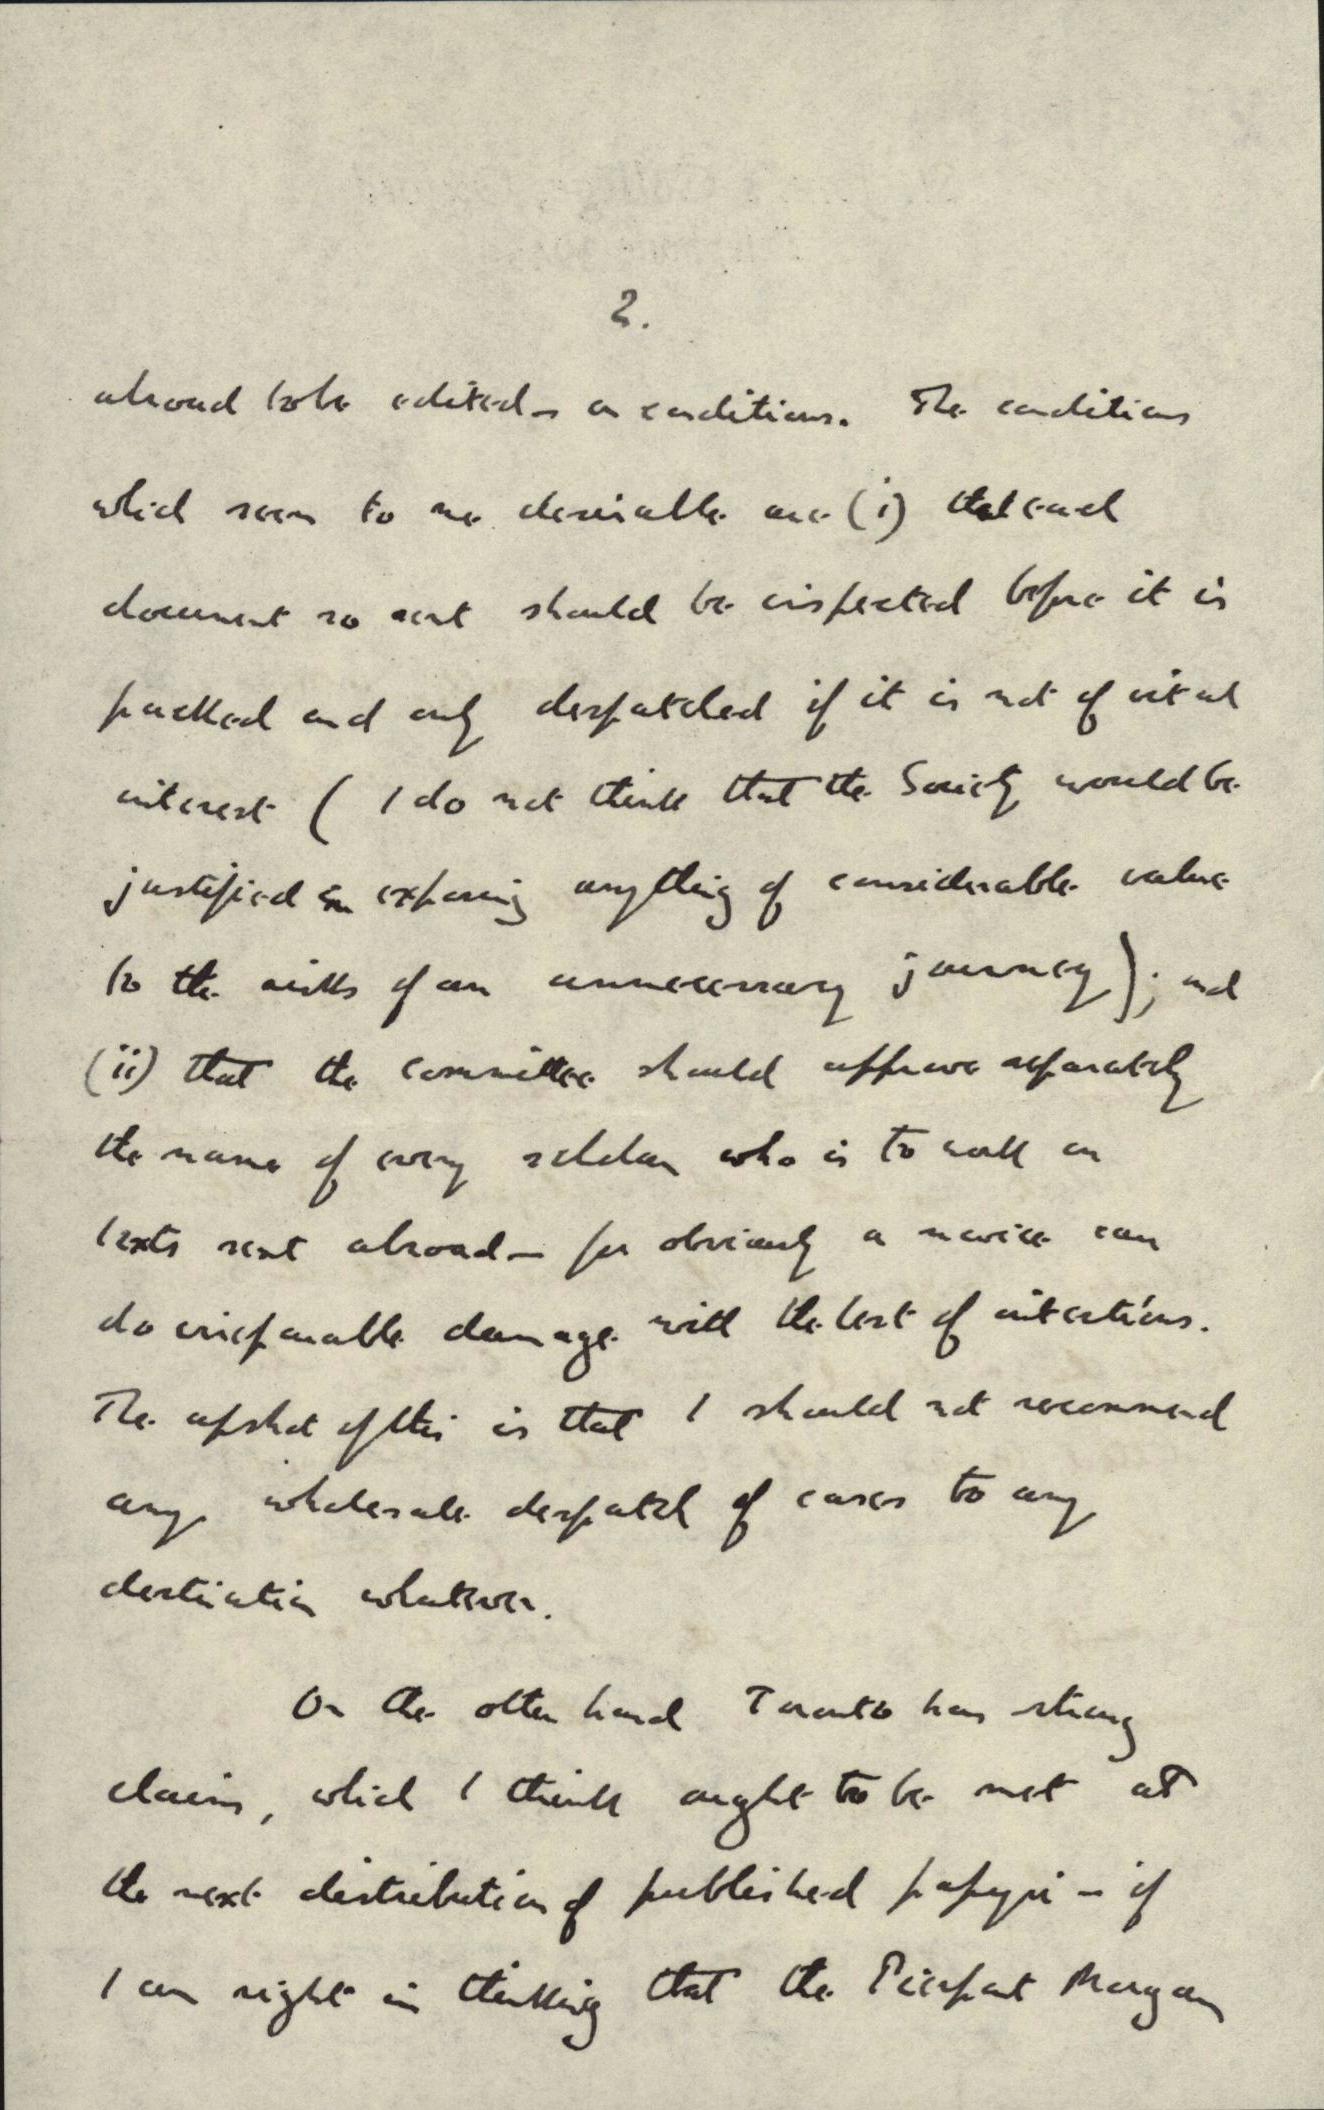 2.
abroad to be edited – on conditions. The conditions
which seem to me desirable are (i) that each
document so sent should be inspected before it is
packed and only despatched if it is not of vital
interest ( I do not think that the Society would be
justified in exposing anything of considerable value
to the risks of an unnecessary journey); and
(ii) that the committee should approve separately
the name of every scholar who is to work on
texts sent abroad – for obviously a novice can
do irreparable damage with the best of intentions.
The upshot of this is that I should not recommend
any wholesale despatch of cases to any
destination whatever.
On the other hand Toronto has strong
claims, which I think ought to be met at
the next distribution of published papyri – if
I am right in thinking that the Pierpont Morgan